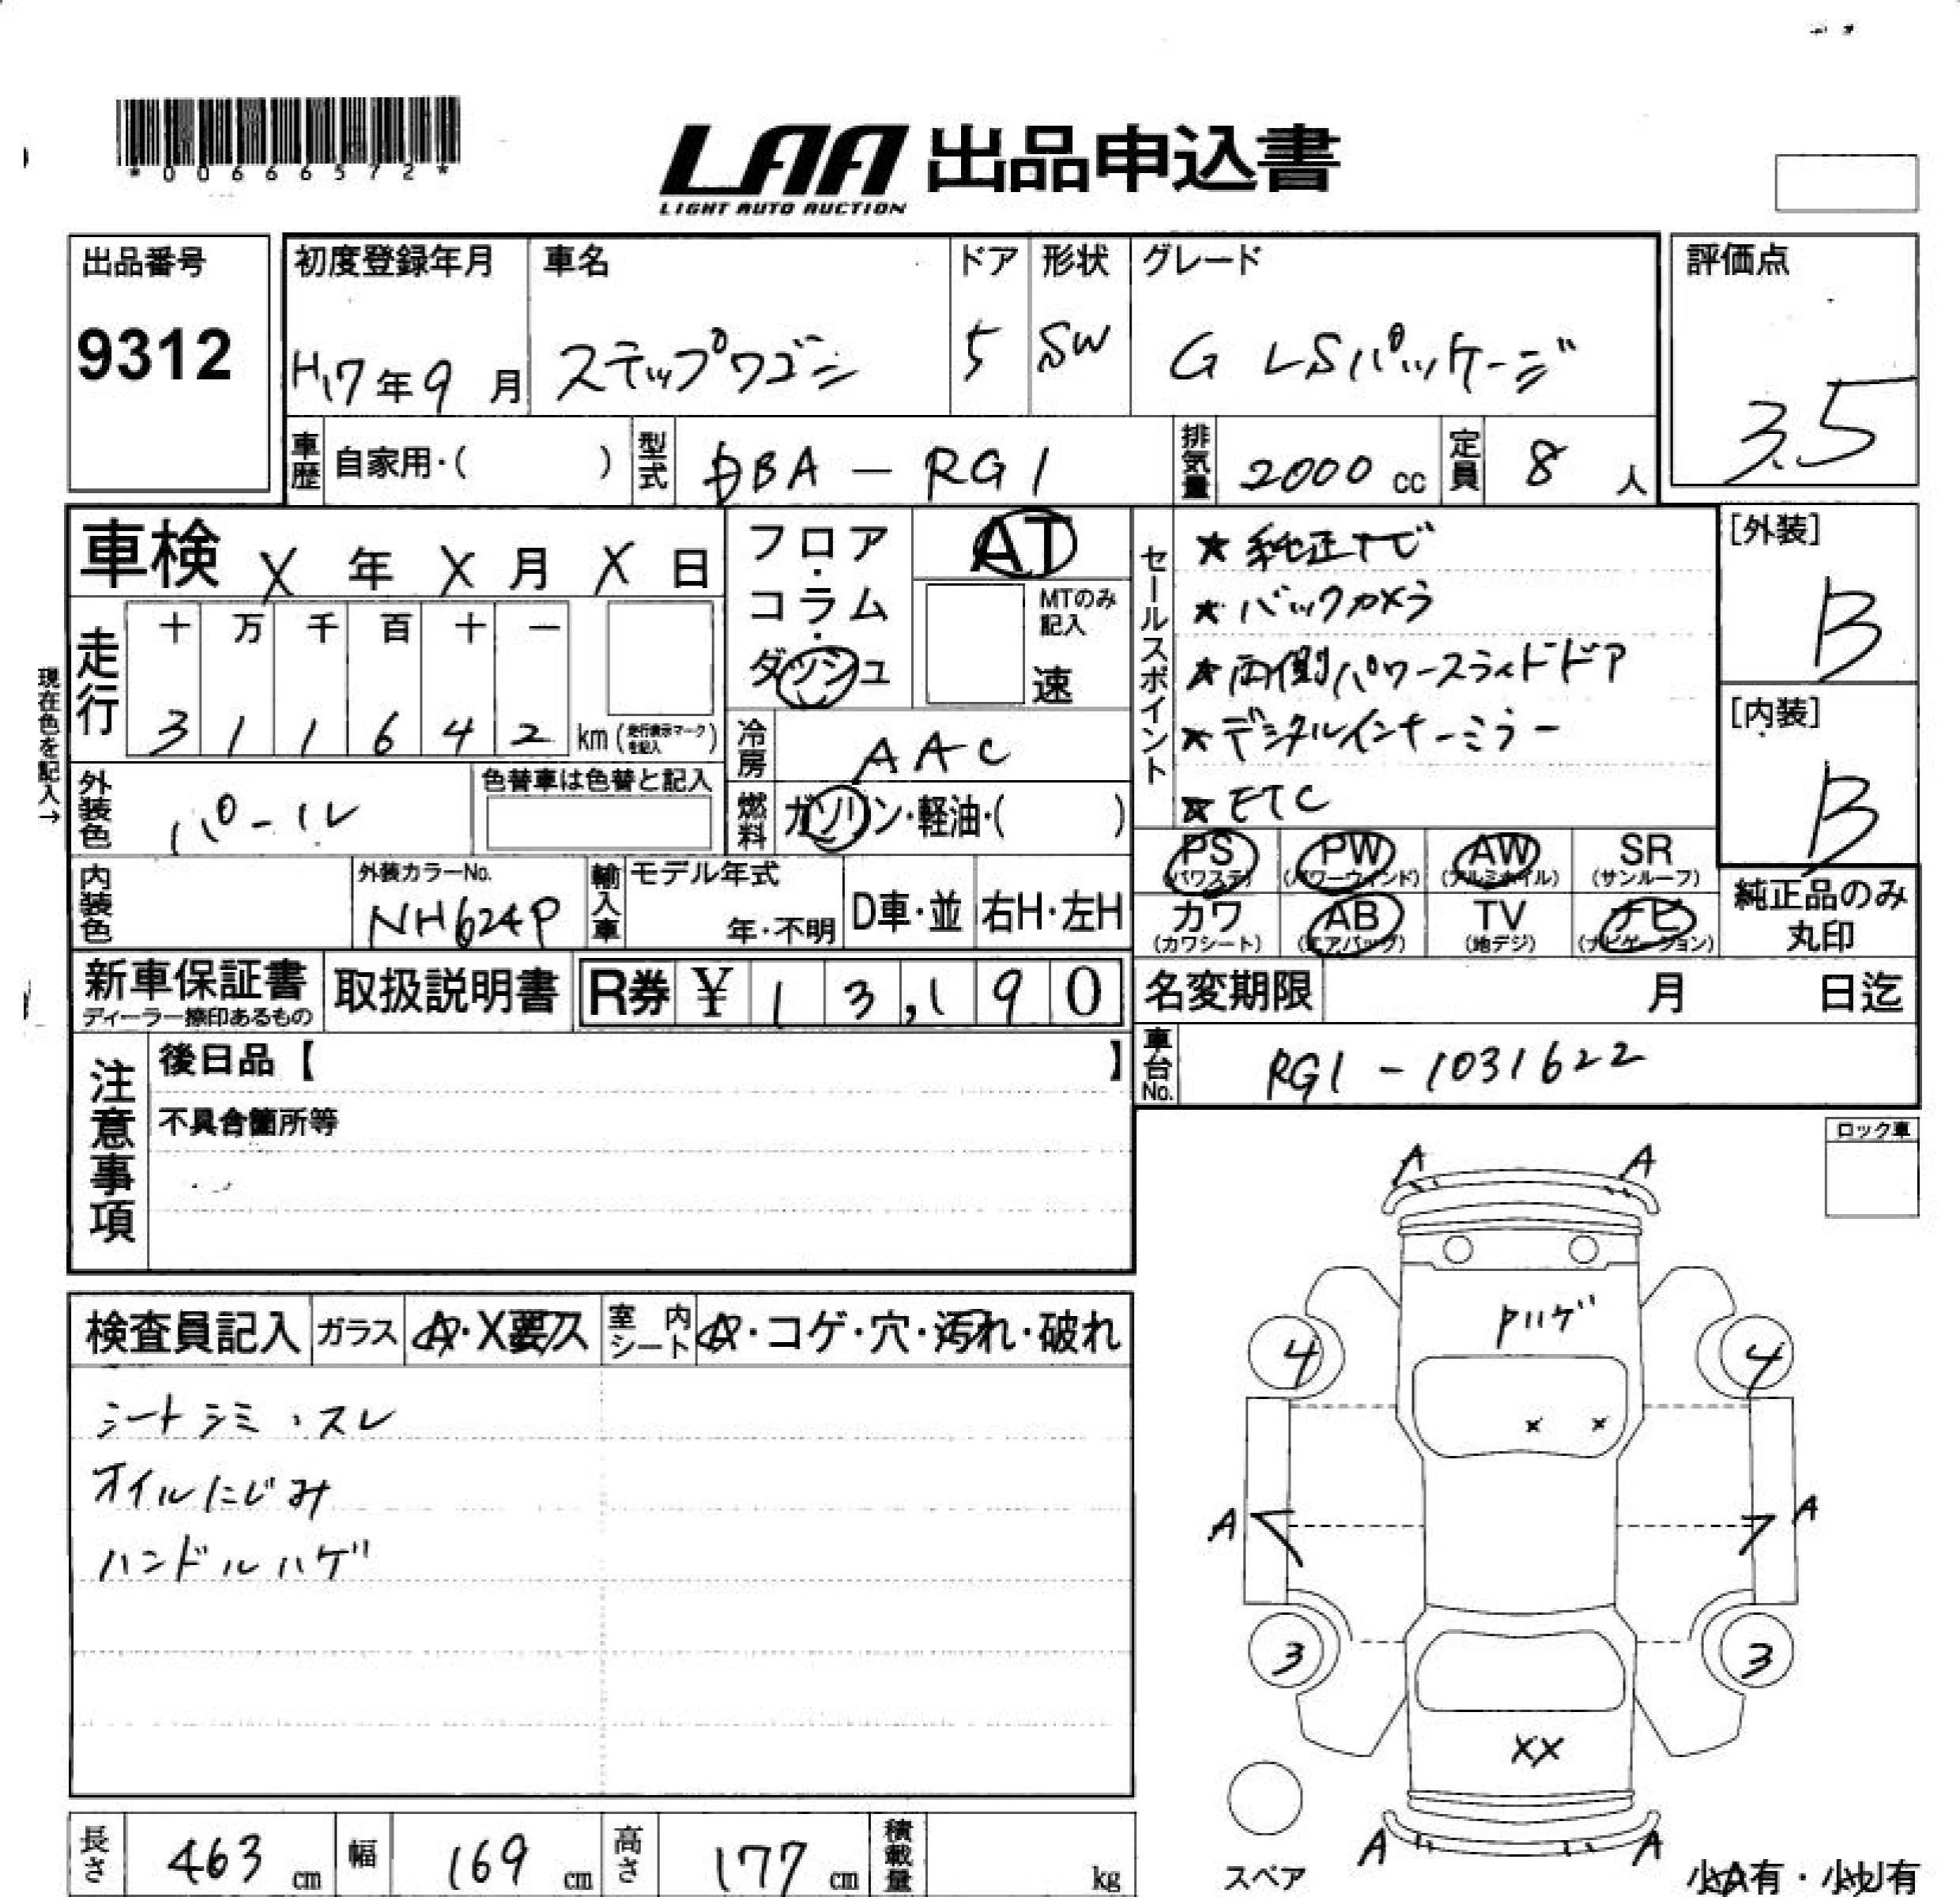 *00666572*
LAA 出品申込書
LIGHT AUTO AUCTION
出品番号 9312
初度登録年月 H17年9月
車名 ステップワゴン
ドア 5
形状 SW
グレード G LSパッケージ
評価点 3.5
車歴 自家用・( )
型式 DBA-RG1
排気量 2000 cc
定員 8 人
車検 X 年 X 月 X 日
フロア・コラム・ダッシュ
AT
MTのみ記入
速
セールスポイント
★純正ナビ
★バックカメラ
★両側パワースライドドア
★デジタルインナーミラー
★ETC
[外装] B
[内装] B
現在色を記入→
走行
十 万 千 百 十 一
3 1 1 6 4 2 km (走行表示マークを記入)
冷房 AAC
外装色 パール
色替車は色替と記入
燃料 ガソリン・軽油・( )
PS (パワステ) PW (パワーウィンド) AW (アルミホイル) SR (サンルーフ)
カワ (カワシート) AB (エアバッグ) TV (地デジ) ナビ (ナビゲーション)
純正品のみ丸印
内装色
外装カラーNo. NH624P
輸入車
モデル年式 年・不明
D車・並 右H・左H
新車保証書
ディーラー捺印あるもの
取扱説明書
R券 ¥ 13,190
名変期限 月 日迄
車台No. RG1-1031622
注意事項
後日品【 】
不具合箇所等
ロック車
検査員記入 ガラス A・X要ス 室内シート A・コゲ・穴・汚れ・破れ
シートシミ・スレ
オイルにじみ
ハンドルハゲ
A A
Pハゲ
4 4
x x
A A
3 3
XX
A A
スペア
小A有・小U有
長さ 463 cm
幅 169 cm
高さ 177 cm
積載量 kg